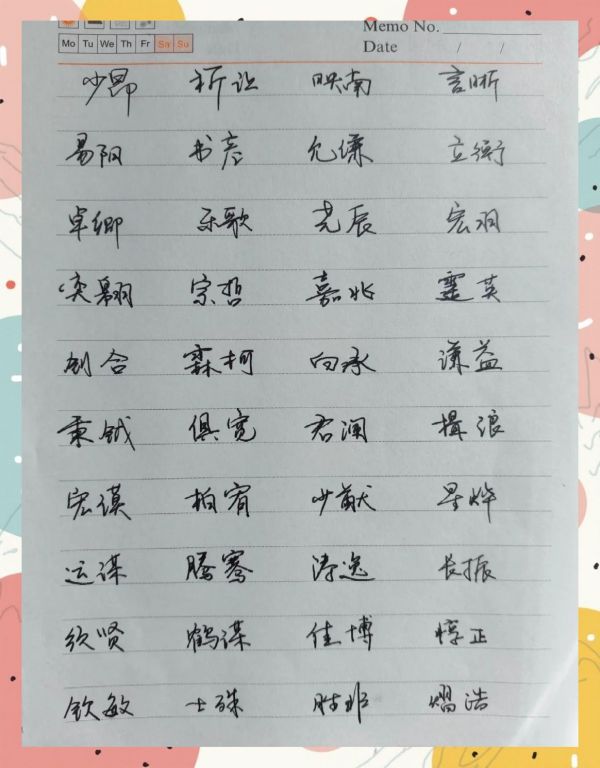 Memo No.
Mo Tu We Th Fr Sa Su
Date / /
少昂 析让 映南 言晰
易阳 书彦 允谦 立衡
卓卿 乐歌 尧辰 宏羽
奕翱 宗哲 嘉兆 灵英
创合 霖柯 向承 谦益
秉钺 俱宽 君澜 楫浪
宏谟 柏宥 少猷 星烨
运谋 腾骞 涛逸 长振
欣贤 鹤谋 佳博 惇正
钦敏 士殊 胜非 熠浩